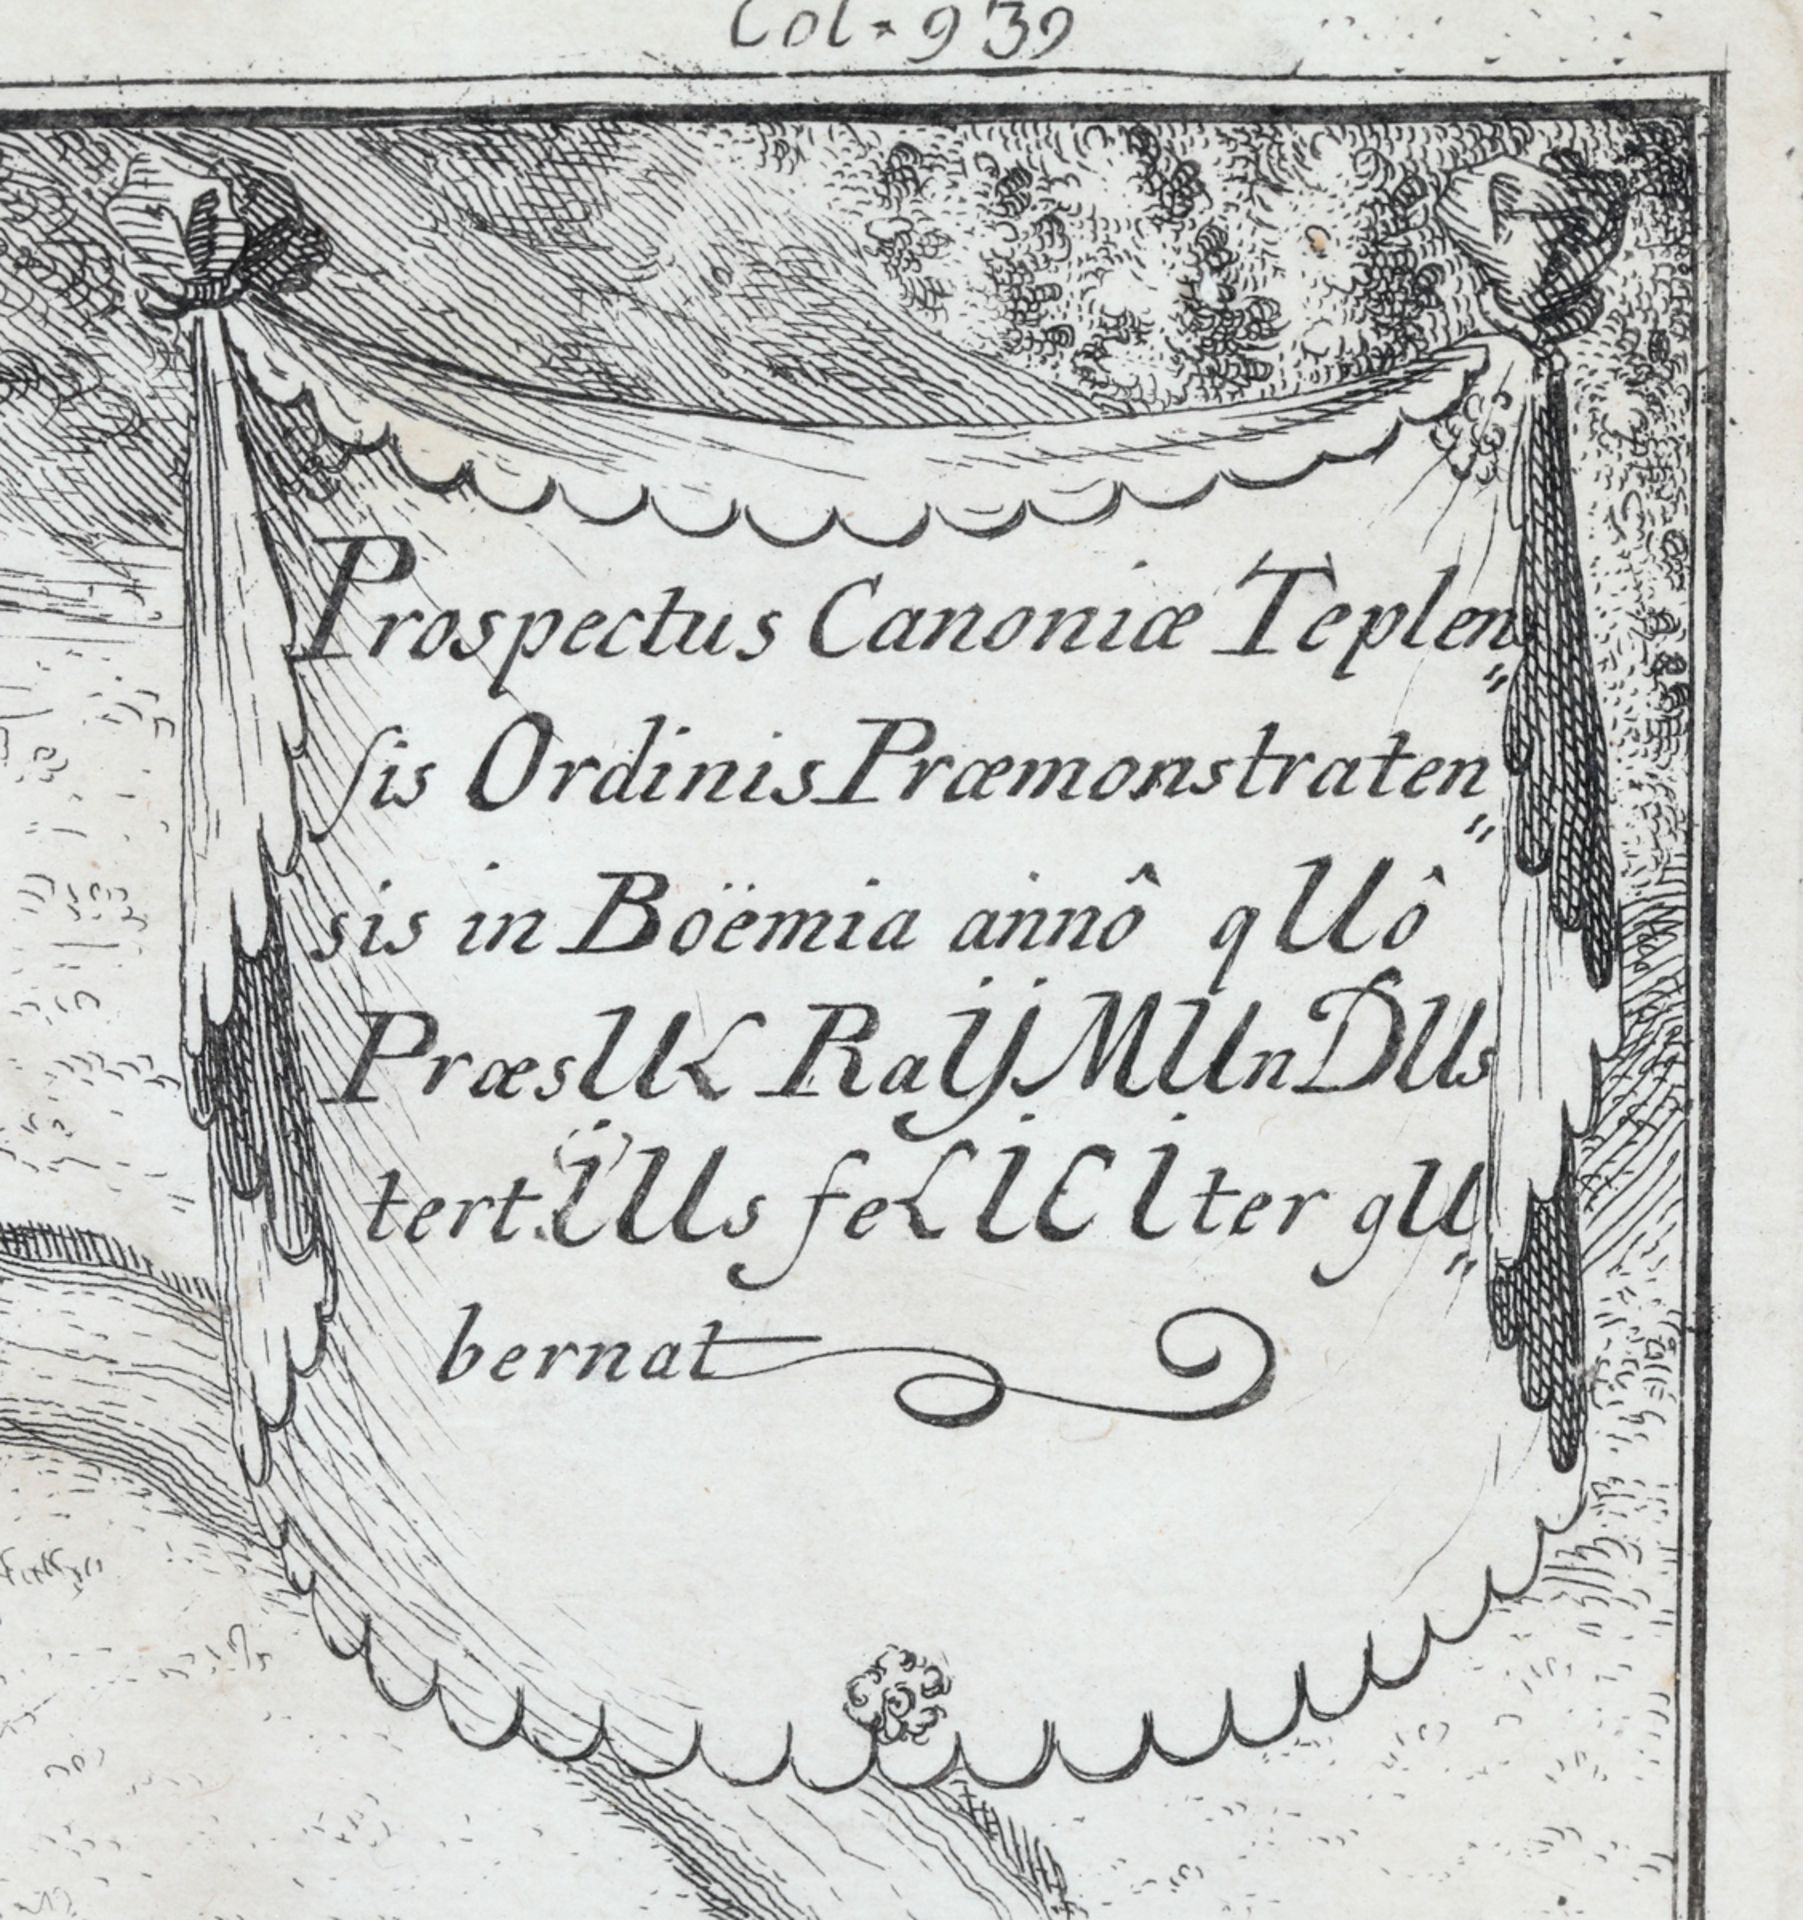 Col. 939
Prospectus Canoniæ Teplen„
ſis Ordinis Præmonstraten„
sis in Boëmia annô qUô
PræsUL RaŸMUnDUs
tertIUs feLICIter gU„
bernat